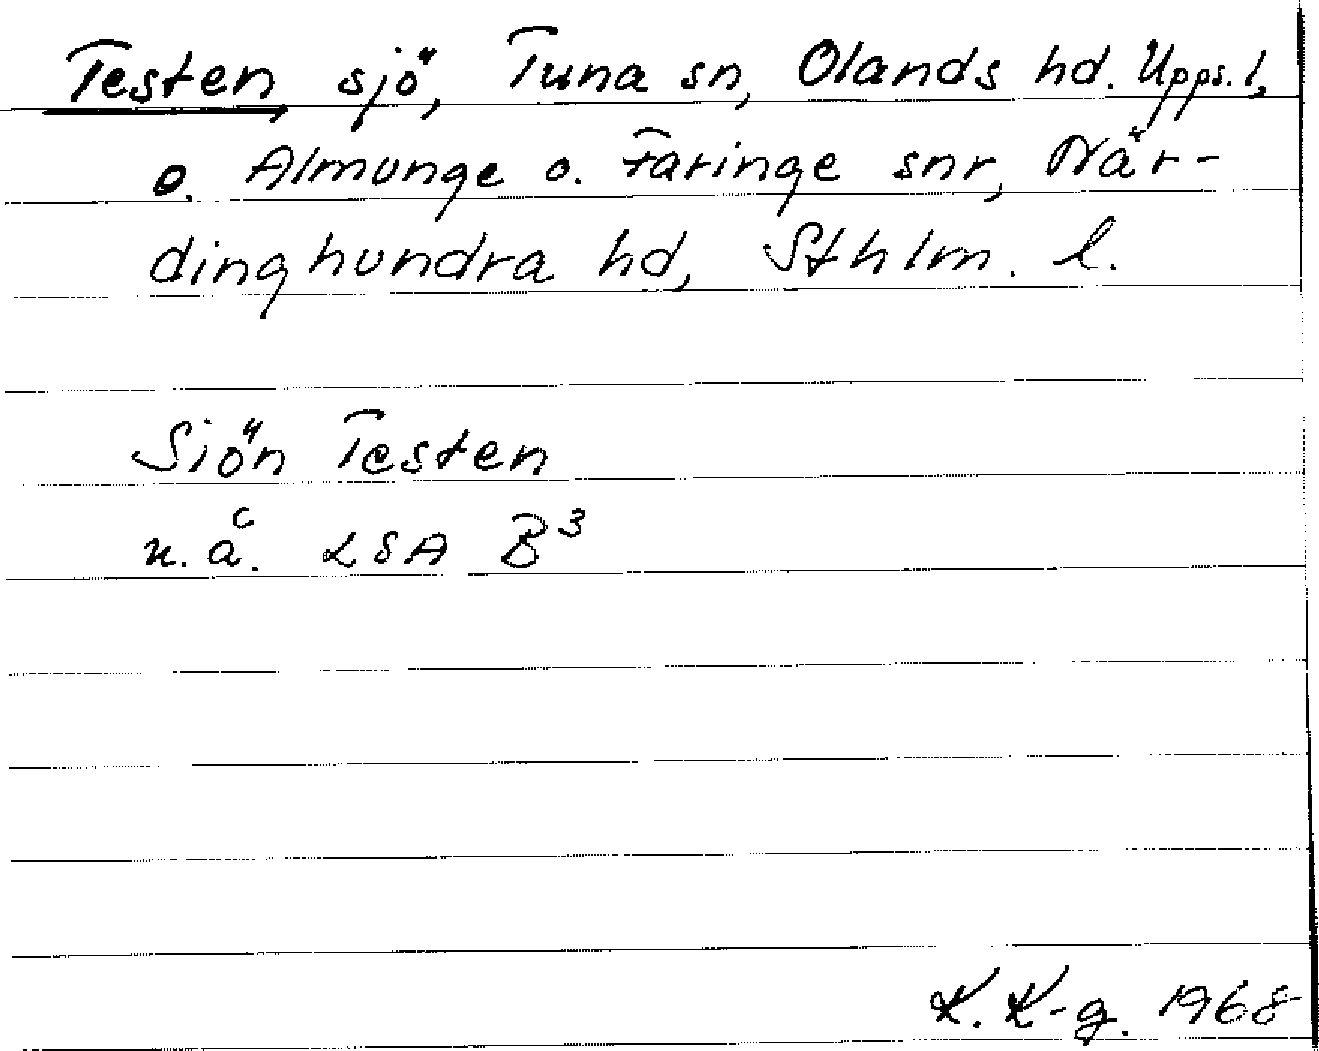 Testen, sjö, Tuna sn, Olands hd. Upps. l,
o. Almunge o. Faringe snr, När-
dinghundra hd, Sthlm. l.
Siön Testen
u.å. LSA B3
K. K-g. 1968